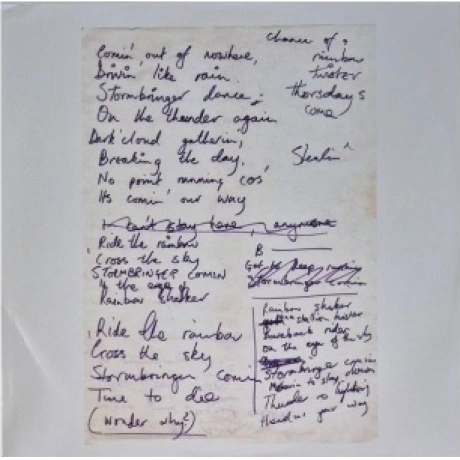 Comin' out of nowhere,
Drivin' like rain.
Stormbringer dance,
On the thunder again
Dark cloud gatherin,
Breaking the day.
No point running cos
Its comin' our way
I can't stay here, anymore
Ride the rainbow
Cross the sky
STORMBRINGER COMIN
In the eye of
Rainbow shaker
Ride the rainbow
Cross the sky
Stormbringer comin
Time to die
(wonder why?)
chance of a
rainbow
twister
thorsdays
come
Stealin'
B
Got to keep
Stormbringer comin
Rainbow shaker
stallion
Bareback rider
On the eye of the sky
Stormbringer comin
to stay down
Thunder
Headin' your way